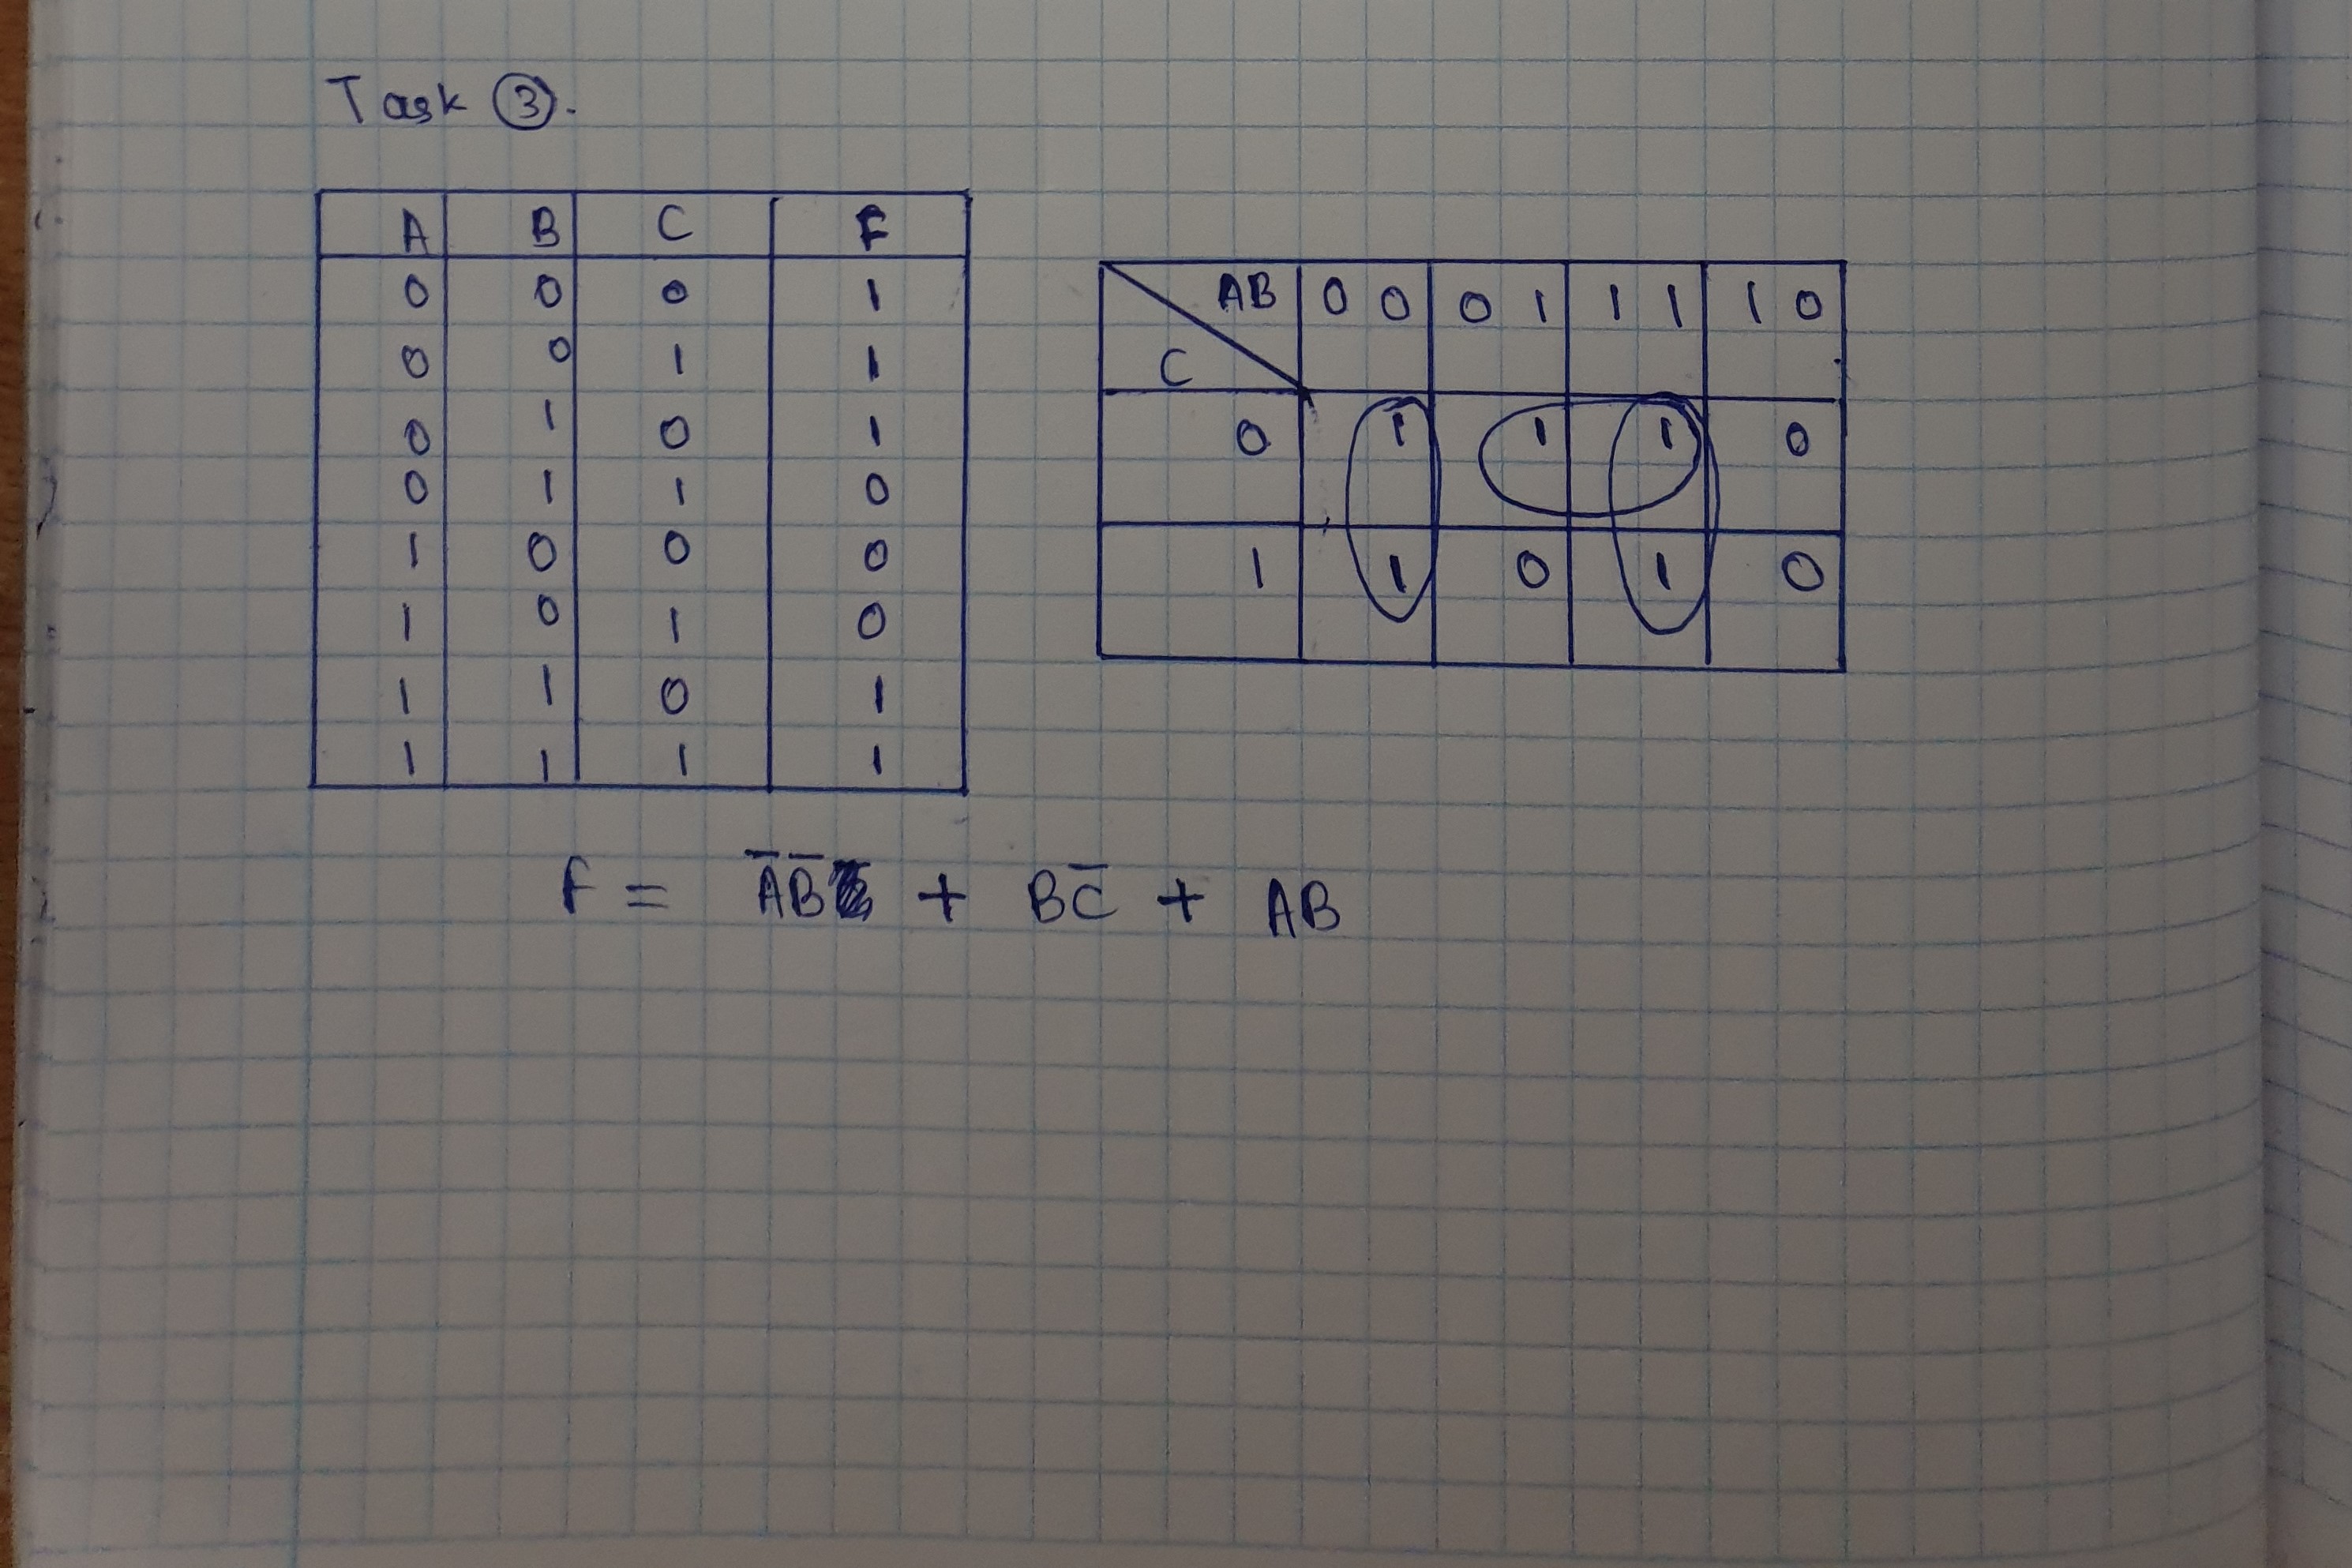 Task ③.
A B C F
0 0 0 1
0 0 1 1
0 1 0 1
0 1 1 0
1 0 0 0
1 0 1 0
1 1 0 1
1 1 1 1
AB 00 01 11 10
C
0 1 1 1 0
1 1 0 1 0
F = A̅B̅ + BC̅ + AB